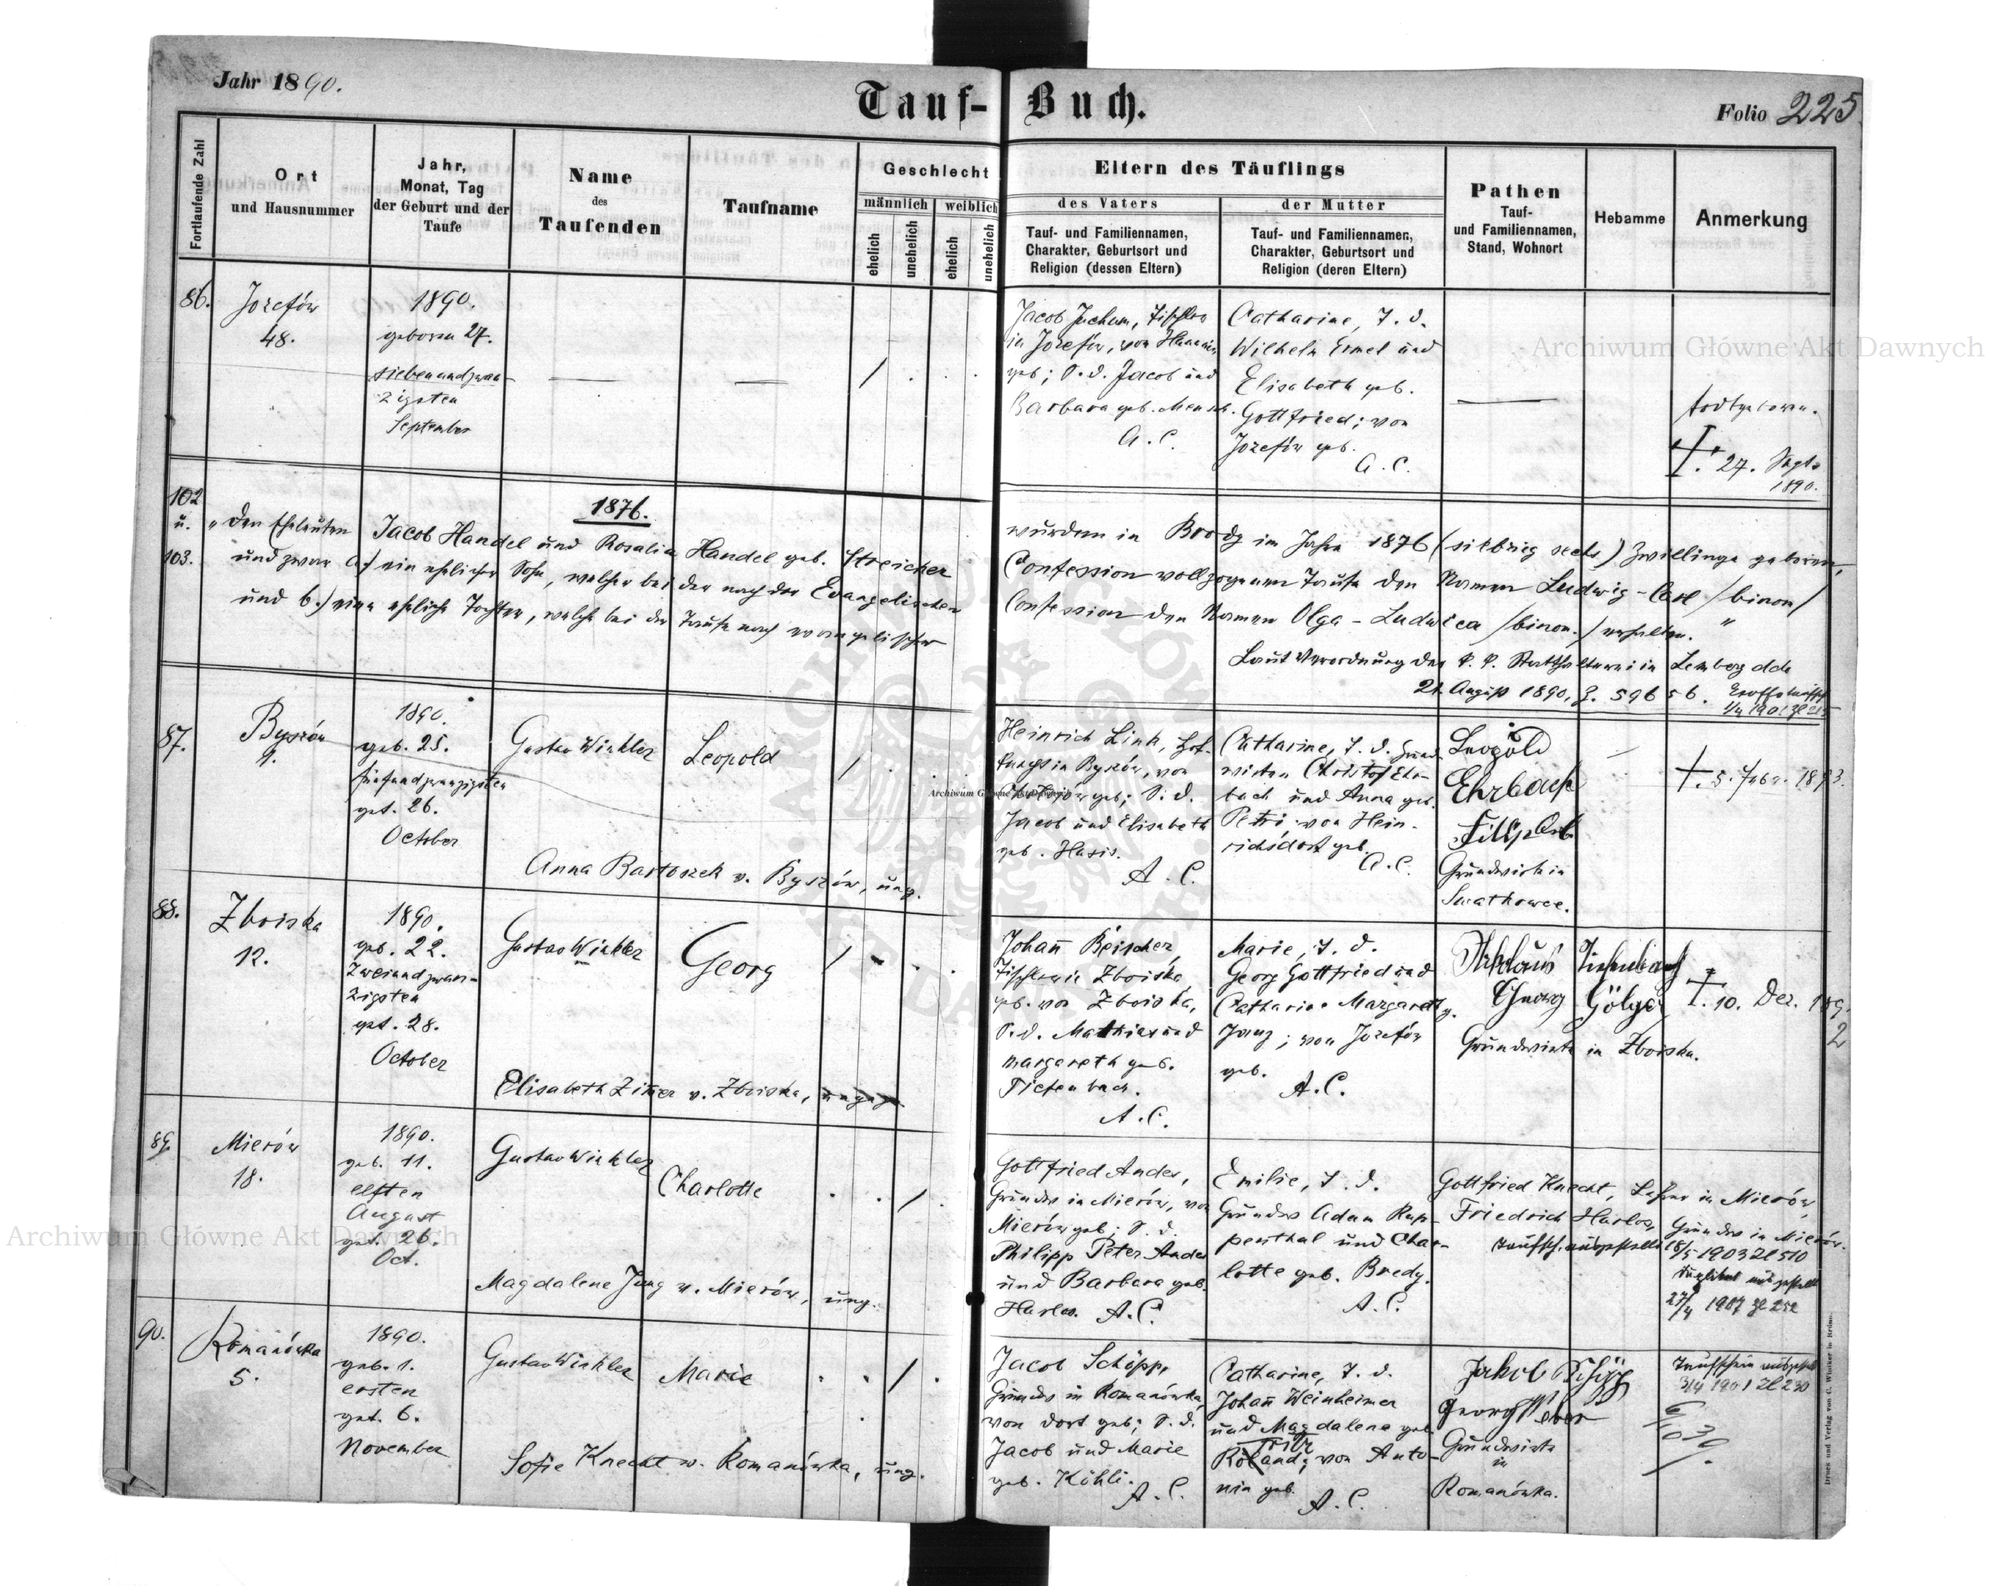 Jahr 1890.
Tauf-Buch.
Folio 225.
Fortlaufende Zahl
Ort
und Hausnummer
Jahr,
Monat, Tag
der Geburt und der
Taufe
Name
des
Taufenden
Taufname
Geschlecht
männlich
weiblich
ehelich
unehelich
ehelich
unehelich
Eltern des Täuflings
des Vaters
Tauf- und Familiennamen,
Charakter, Geburtsort und
Religion (dessen Eltern)
der Mutter
Tauf- und Familiennamen,
Charakter, Geburtsort und
Religion (deren Eltern)
Pathen
Tauf-
und Familiennamen,
Stand, Wohnort
Hebamme
Anmerkung
86.
Jozefów
48.
1890.
geboren 27.
siebenundzwan-
zigsten
September
Jacob Jucham, Tischler
in Jozefów, von
geb; S. d. Jacob und
Barbara geb.
A. C.
Catharine, T. d.
Wilhelm Ermel und
Elisabeth geb.
Gottfried; von
Jozefów geb.
A. C.
todtgeboren.
†. 27. Septb
1890.
102
u.
103.
1876.
"Den Eheleuten Jacob Handel und Rosalia Handel geb. Streicher wurden in Brody im Jahre 1876 (siebzig sechs) Zwillinge geboren,
und zwar a.) ein ehelicher Sohn, welcher bei der nach der Evangelischen Confession vollzogenen Taufe den Namen Ludwig-Carl /binon/
und b.) eine eheliche Tochter, welche bei der Taufe nach evangelischer Confession den Namen Olga-Ludwica /binon./ erhalten."
Laut Verordnung der k. k. Statthalterei in Lemberg ddo
21. August 1890, Z. 59656.
87.
Byszów
1890.
geb. 25.
fünfundzwanzigsten
get. 26.
October
Gustav Winkler
Leopold
Anna Bartoszek v. Byszów, ung.
Heinrich Link,
in Byszów, von
geb; S. d.
Jacob und Elisabeth
geb. Hasis.
A. C.
Catharine, T. d. Grund-
wirten Christof Ehr-
bach und Anna geb.
Petri von Hein-
richsdorf geb.
A. C.
Leopold
Ehrbach
Grundwirth in
†. 5. Febr. 1893.
88.
Zboiska
12.
1890.
geb. 22.
Zweiundzwan-
zigsten
get. 28.
October
Gustav Winkler
Georg
Elisabeth Zim̄er v. Zboiska,
Johan̄ Reischer,
Tischler in Zboiska,
geb. von Zboiska,
S. d. Mathias und
Margareth geb.
Tiefenbach.
A. C.
Marie, T. d.
Georg Gottfried und
Catharine Margareth g.
Jung; von Jozefów
geb.
A. C.
Nikolaus Tiefenbach
Georg
Grundwirte in Zboiska.
†. 10. Dez. 189
2
89.
Mierów
18.
1890.
geb. 11.
elften
August
get. 26.
Oct.
Gustav Winkler
Charlotte
Magdalene Jung v. Mierów, ung.
Gottfried Andes,
Grundw in Mierów, von
Mierów geb; S. d.
Philipp Peter Andes
und Barbara geb.
Harlos. A. C.
Emilie, T. d.
Grundw Adam Rup-
penthal und Char-
lotte geb. Bredy.
A. C.
Gottfried Knecht, Lehrer in Mierów
Friedrich Harlos, Grundw in Mierów.
Taufsch. ausgestellt 18/5 1903 Zl 510
Duplikat ausgestellt
27/4 1907 Zl 252
90.
Romanówka
5.
1890.
geb. 1.
ersten
get. 6.
November
Gustav Winkler
Marie
Sofie Knecht v. Romanówka, ung.
Jacob Schöpp,
Grundw in Romanówka,
von dort geb; S. d.
Jacob und Marie
geb. Köhli.
A. C.
Catharine, T. d.
Johan̄ Weinheimer
und Magdalena geb.
Roland; von Anto-
nin geb.
A. C.
Jakob Schöpp
Georg Weber
Grundwirte
in
Romanówka.
Taufschein ausgestellt
3/4 1901 Zl 230
Druck und Verlag von C. Winiker in Brünn.
Archiwum Główne Akt Dawnych
Archiwum Główne Akt Dawnych
Archiwum Główne Akt Dawnych